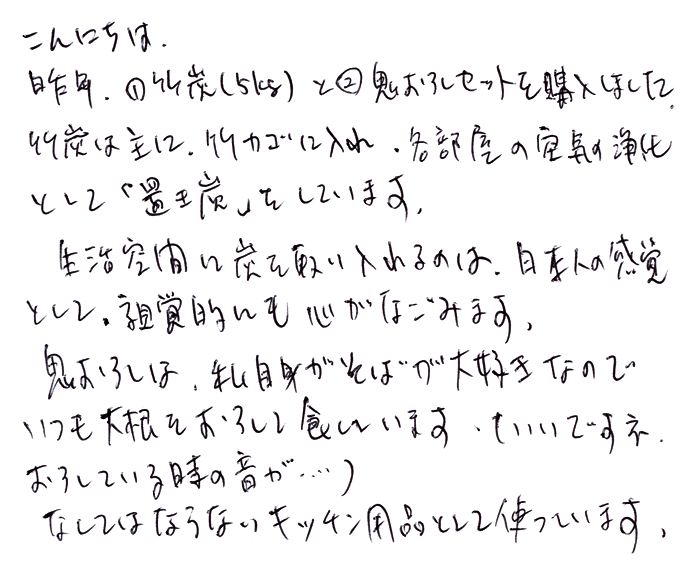 こんにちは.
昨年、①竹炭(5kg)と②鬼おろしセットを購入しました
竹炭は主に、竹カゴに入れ、各部屋の空気の浄化
として「置き炭」をしています。
生活空間に炭を取り入れるのは、日本人の感覚
として、視覚的にも心がなごみます。
鬼おろしは、私自身がそばが大好きなので
いつも大根をおろして食しています。(いいですネ.
おろしている時の音が....)
なくてはならないキッチン用品として使っています。